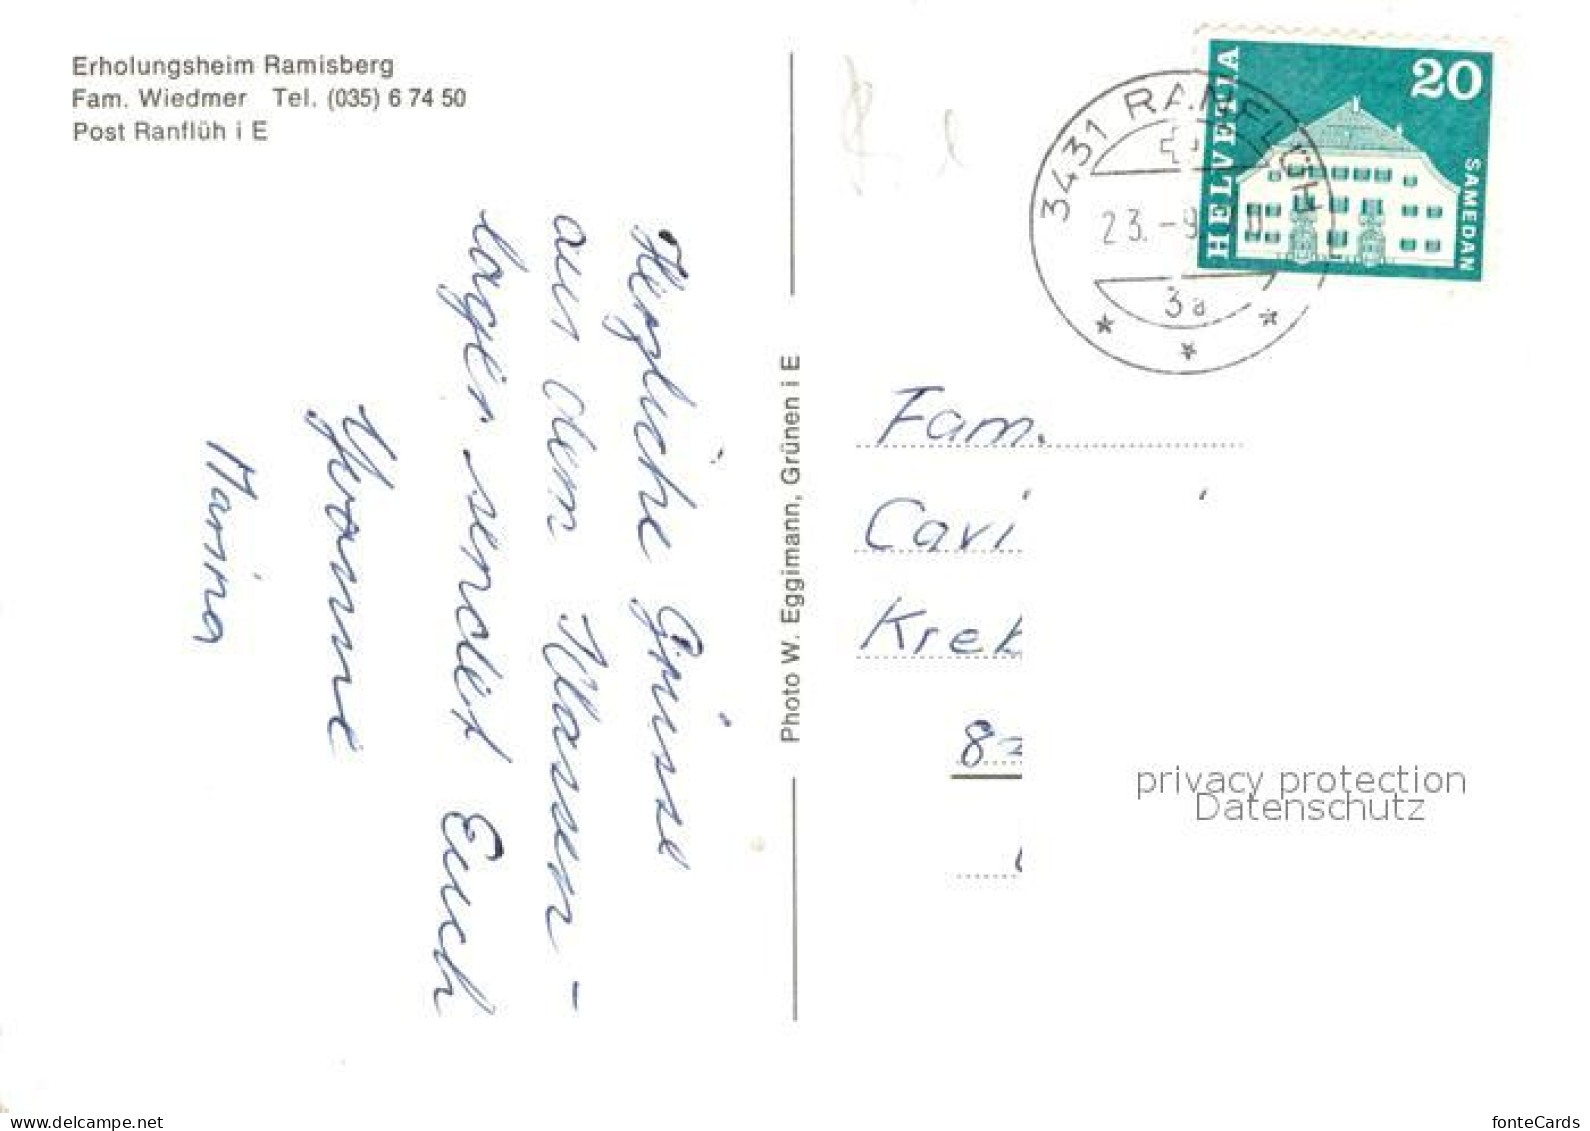 Erholungsheim Ramisberg
Fam. Wiedmer Tel. (035) 6 74 50
Post Ranflüh i E
Herzliche Grüsse
aus dem Klassen-
lager sendet Euch
Yvonne
Marina
Photo W. Eggimann, Grünen i E
3431 RANFLÜH
23.-9
3a
HELVETIA
20
SAMEDAN
Fam.
Cavi
Kreb
82
privacy protection
Datenschutz
www.delcampe.net
fonteCards